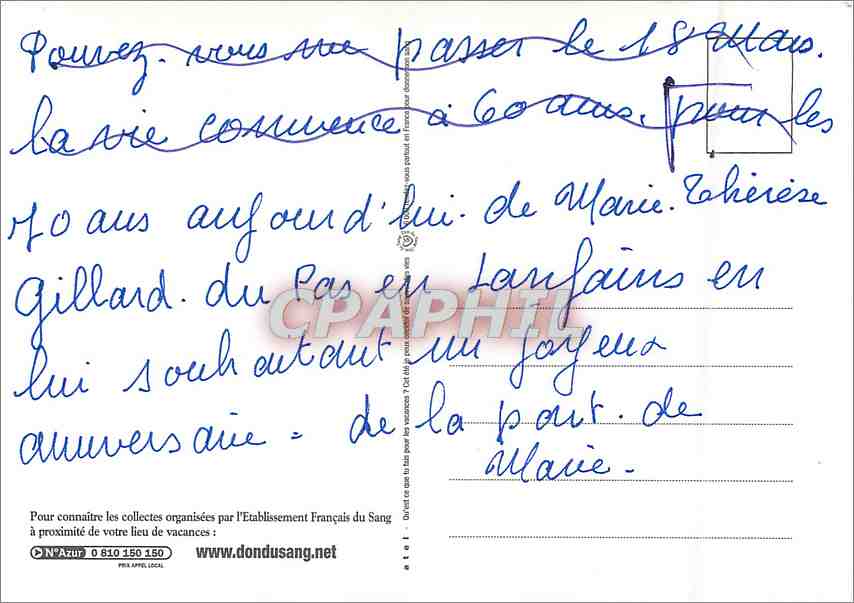 Pouvez-vous me passer le 18 Mars.
la vie commence à 60 ans. pour les
70 ans aujourd'hui. de Marie-Thérèse
Gillard. du Pas en Lanfains en
lui souhaitant un joyeux
anniversaire = de la part. de
Marie.
CPAPHIL
Pour connaître les collectes organisées par l'Etablissement Français du Sang
à proximité de votre lieu de vacances :
N°Azur 0 810 150 150 www.dondusang.net
PRIX APPEL LOCAL
atel - Qu'est ce que tu fais pour les vacances ? Cet été je peux